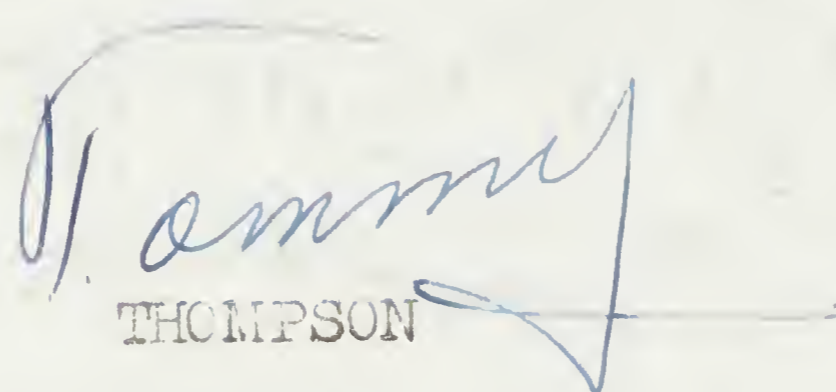 Tommy
THOMPSON